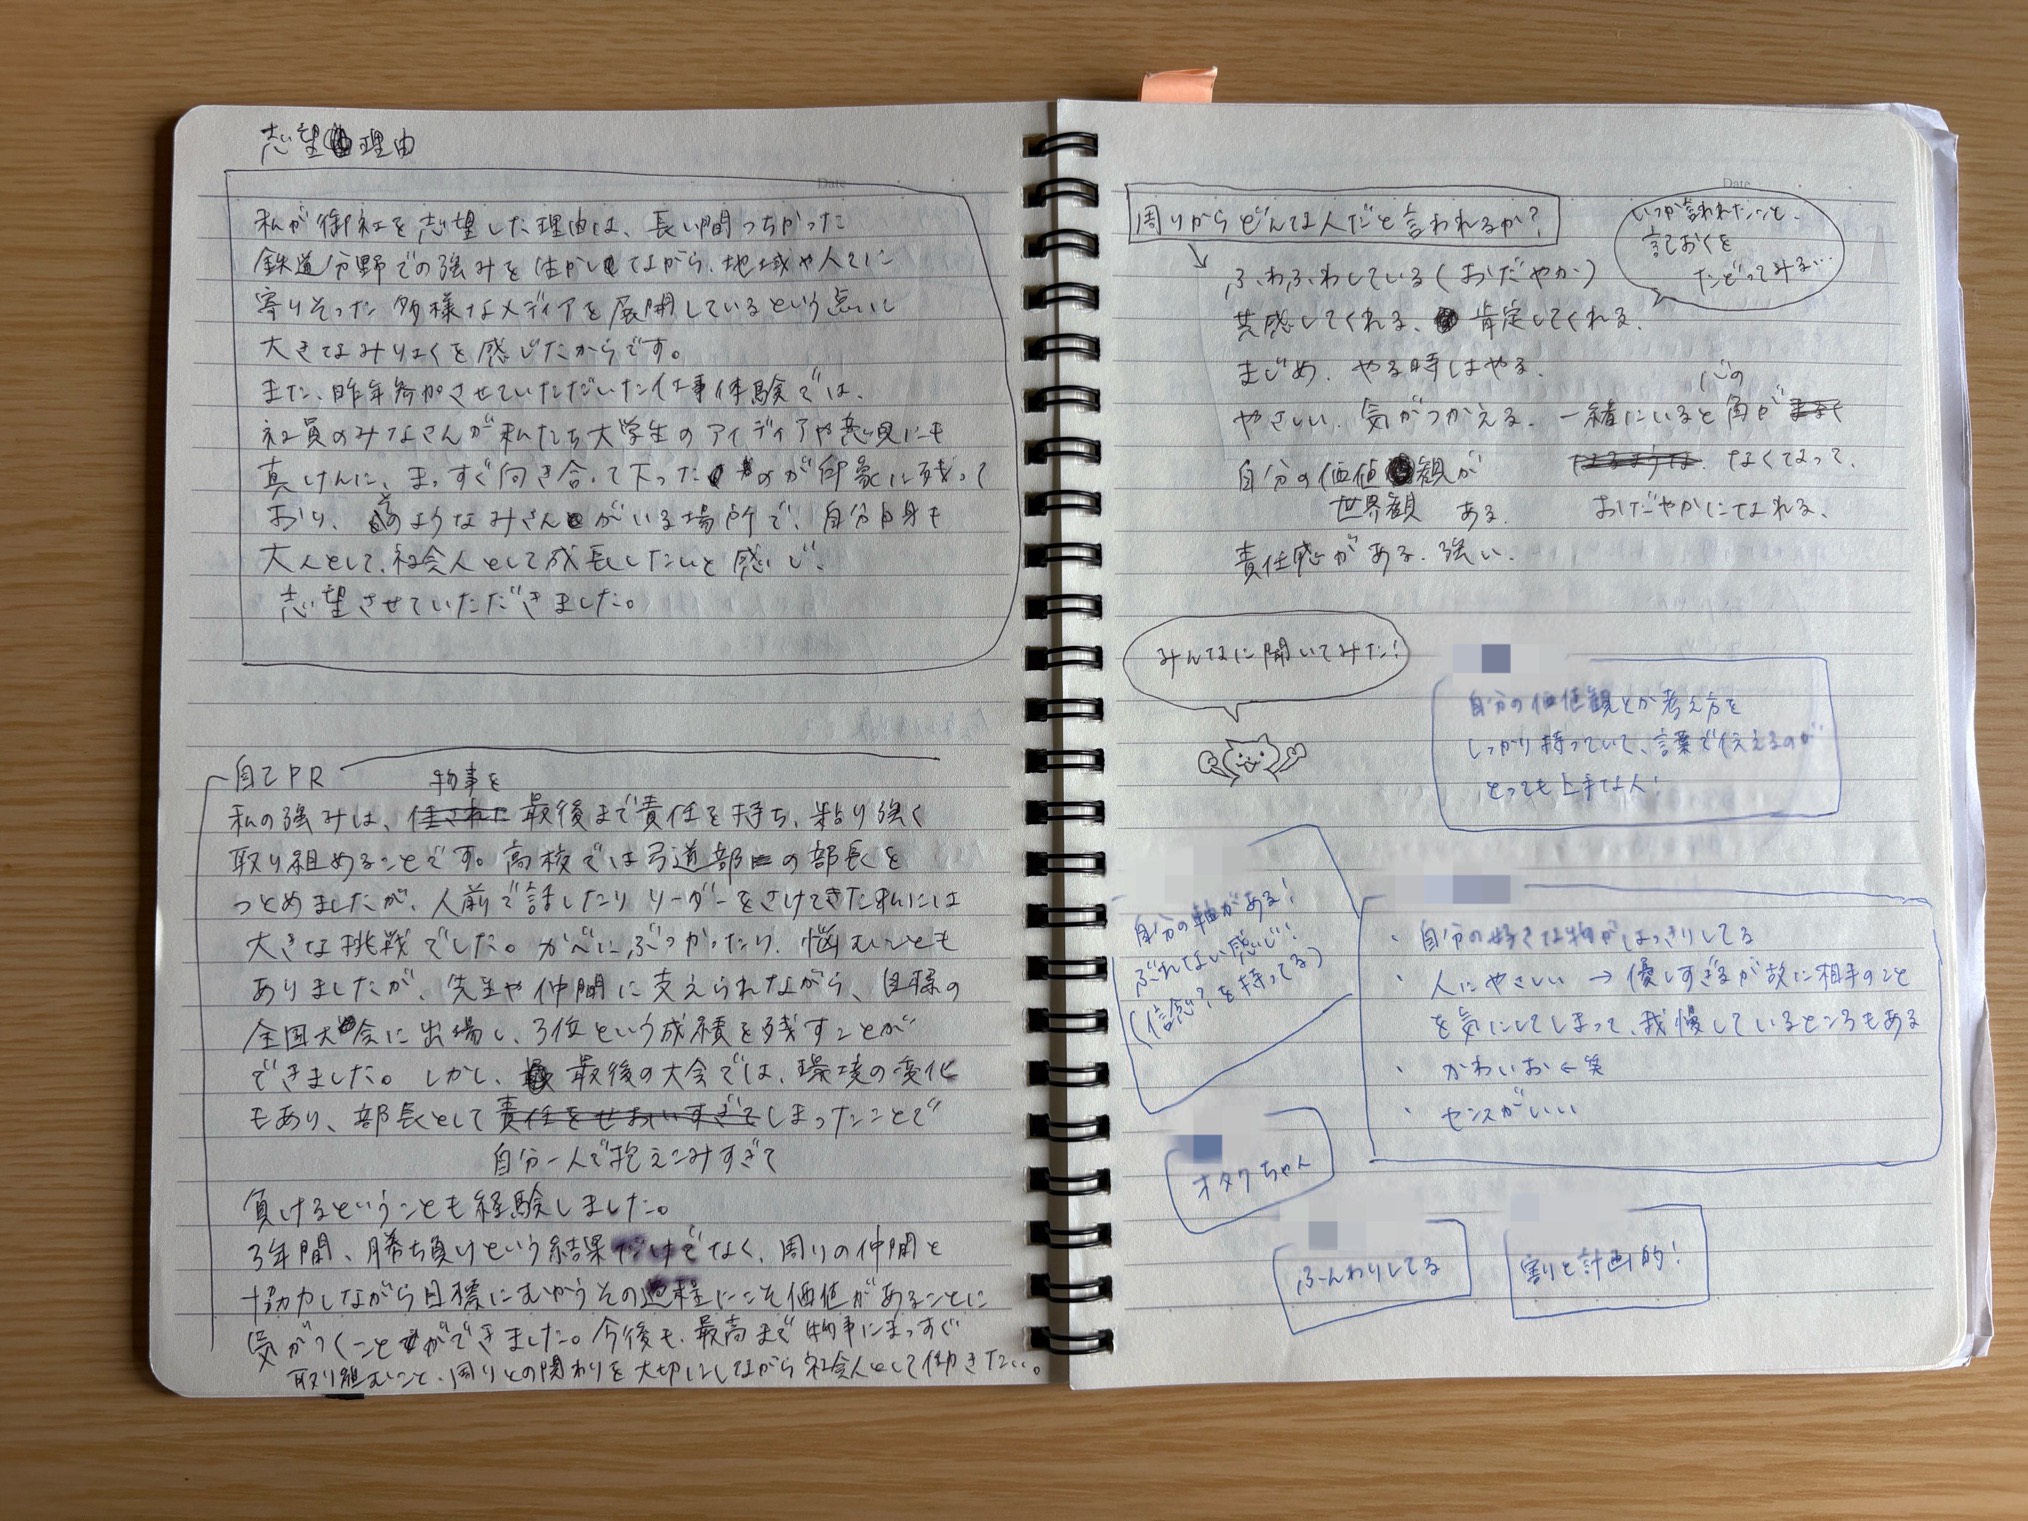 志望理由
私が御社を志望した理由は、長い間つちかった
鉄道分野での強みを生かしながら、地域や人々に
寄りそった多様なメディアを展開しているという点に
大きなみりょくを感じたからです。
また、昨年参加させていただいた仕事体験では、
社員のみなさんが私たち大学生のアイディアや意見にも
真けんに、まっすぐ向き合って下ったのが印象に残って
おり、そのようなみさんがいる場所で、自分自身も
大人として、社会人として成長したいと感じ、
志望させていただきました。
自己PR
物事を
私の強みは、任された最後まで責任を持ち、粘り強く
取り組めることです。高校では弓道部の部長を
つとめましたが、人前で話したりリーダーをさけてきた私には
大きな挑戦でした。かべにぶつかったり、悩むことも
ありましたが、先生や仲間に支えられながら、目標の
全国大会に出場し、3位という成績を残すことが
できました。しかし、最後の大会では、環境の変化
もあり、部長として責任をせおいすぎてしまったことで
自分一人で抱えこみすぎて
負けるということも経験しました。
3年間、勝ち負けという結果だけでなく、周りの仲間と
協力しながら目標にむかうその過程にこそ価値があることに
気がつくことができました。今後も、最高まで物事にまっすぐ
取り組むこと、周りとの関わりを大切にしながら社会人として働きたい。
Date
周りからどんな人だと言われるか?
いつか言われたこと、
記おくを
たどってみる…
ふわふわしている(おだやか)
共感してくれる、肯定してくれる、
まじめ、やる時はやる、
心の
やさしい、気がつかえる、一緒にいると角が
なくなって、
自分の価値観が
世界観 ある、
おだやかになれる、
責任感がある、強い、
みんなに聞いてみた!
自分の価値観とか考え方を
しっかり持っていて、言葉で伝えるのが
とっても上手な人!
自分の軸がある!
ぶれない感じ!
(信念?を持ってる)
・自分の好きな物がはっきりしてる
・人にやさしい→優しすぎるが故に相手のこと
を気にしてしまって、我慢しているところもある
・かわいお←笑
・センスがいい
オタクちゃん
ふんわりしてる
割と計画的!